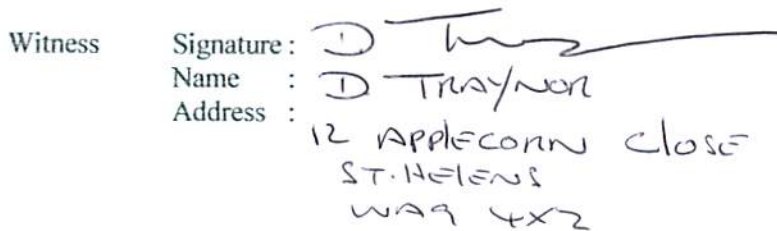 Witness Signature : D T
Name : D TRAYNOR
Address :
12 APPLECORN CLOSE
ST. HELENS
WA9 4XZ